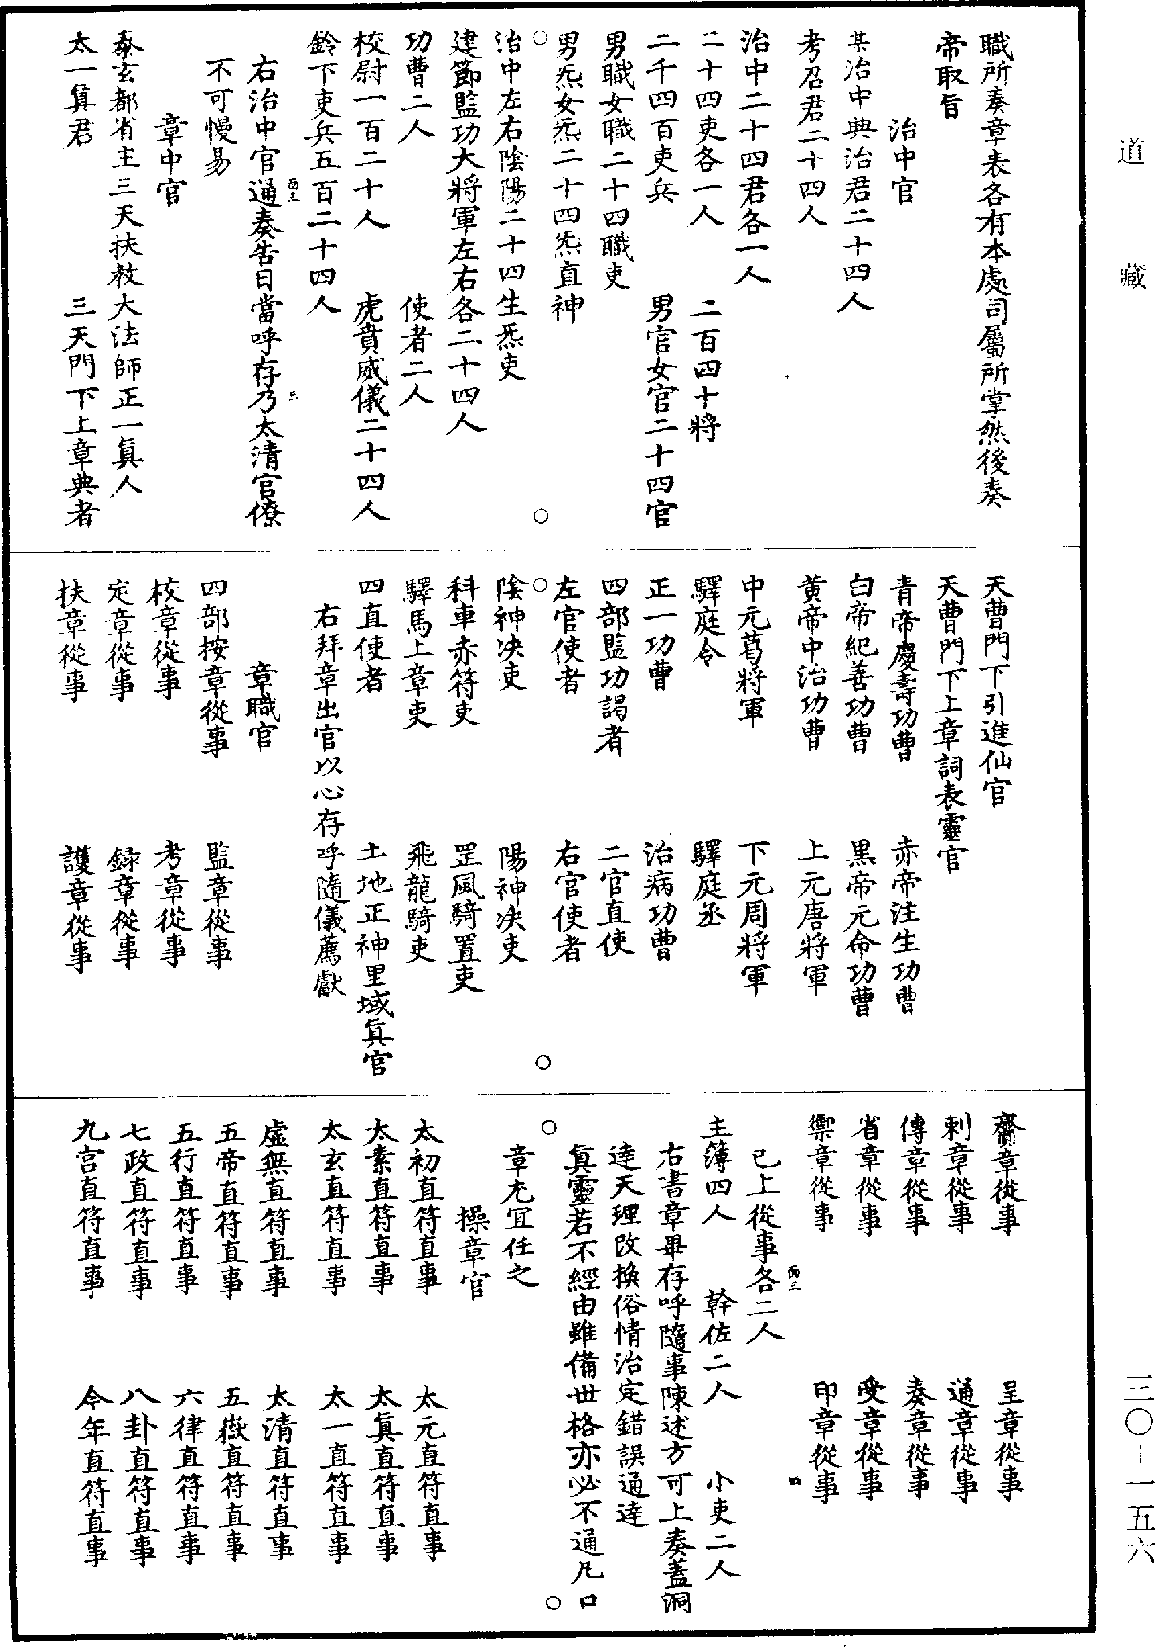 職所奏章表各有本處司屬所掌然後奏
帝取旨
治中官
某治中典治君二十四人
考召君二十四人
治中二十四君各一人
二十四吏各一人　二百四十將
二千四百吏兵　男官女官二十四官
男職女職二十四職吏
男炁女炁二十四炁直神
○　○
治中左右陰陽二十四生炁吏
建節監功大將軍左右各二十四人
功曹二人　使者二人
校尉一百二十人　虎賁威儀二十四人
鈴下吏兵五百二十四人
右治中官通奏告日當呼存乃太清官僚
不可慢易
章中官
泰玄都省主三天扶教大法師正一真人
太一真君　三天門下上章典者
天曹門下引進仙官
天曹門下上章詞表靈官
青帝慶壽功曹　赤帝注生功曹
白帝紀善功曹　黑帝元命功曹
黃帝中治功曹　上元唐將軍
中元葛將軍　下元周將軍
驛庭令　驛庭丞
正一功曹　治病功曹
四部監功謁者　二官直使
左官使者　右官使者
○　○
陰神决吏　陽神决吏
科車赤符吏　罡風騎置吏
驛馬上章吏　飛龍騎吏
四直使者　土地正神里域真官
右拜章出官以心存呼隨儀薦獻
章職官
四部按章從事　監章從事
校章從事　考章從事
定章從事　錄章從事
扶章從事　護章從事
齎章從事　呈章從事
刺章從事　通章從事
傳章從事　奏章從事
省章從事　受章從事
禦章從事　印章從事
已上從事各二人
主薄四人　幹佐二人　小吏二人
右書章畢存呼隨事陳述方可上奏蓋洞
達天理改換俗情治定錯誤通達
真靈若不經由雖備世格亦必不通凡口
○　○
章尤宜任之
操章官
太初直符直事　太元直符直事
太素直符直事　太真直符直事
太玄直符直事　太一直符直事
虛無直符直事　太清直符直事
五帝直符直事　五嶽直符直事
五行直符直事　六律直符直事
七政直符直事　八卦直符直事
九宮直符直事　今年直符直事
道藏
三〇-一五六